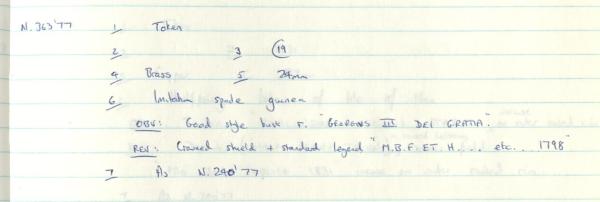 N.363'77 1 Token
2 3 19
4 Brass 5 24mm
6 Imitation spade guinea
OBV: Good style bust r. "GEORGIVS III DEI GRATIA."
REV: Crowned shield + standard legend "M.B.F ET. H.... etc.. 1798"
7 As N.240'77